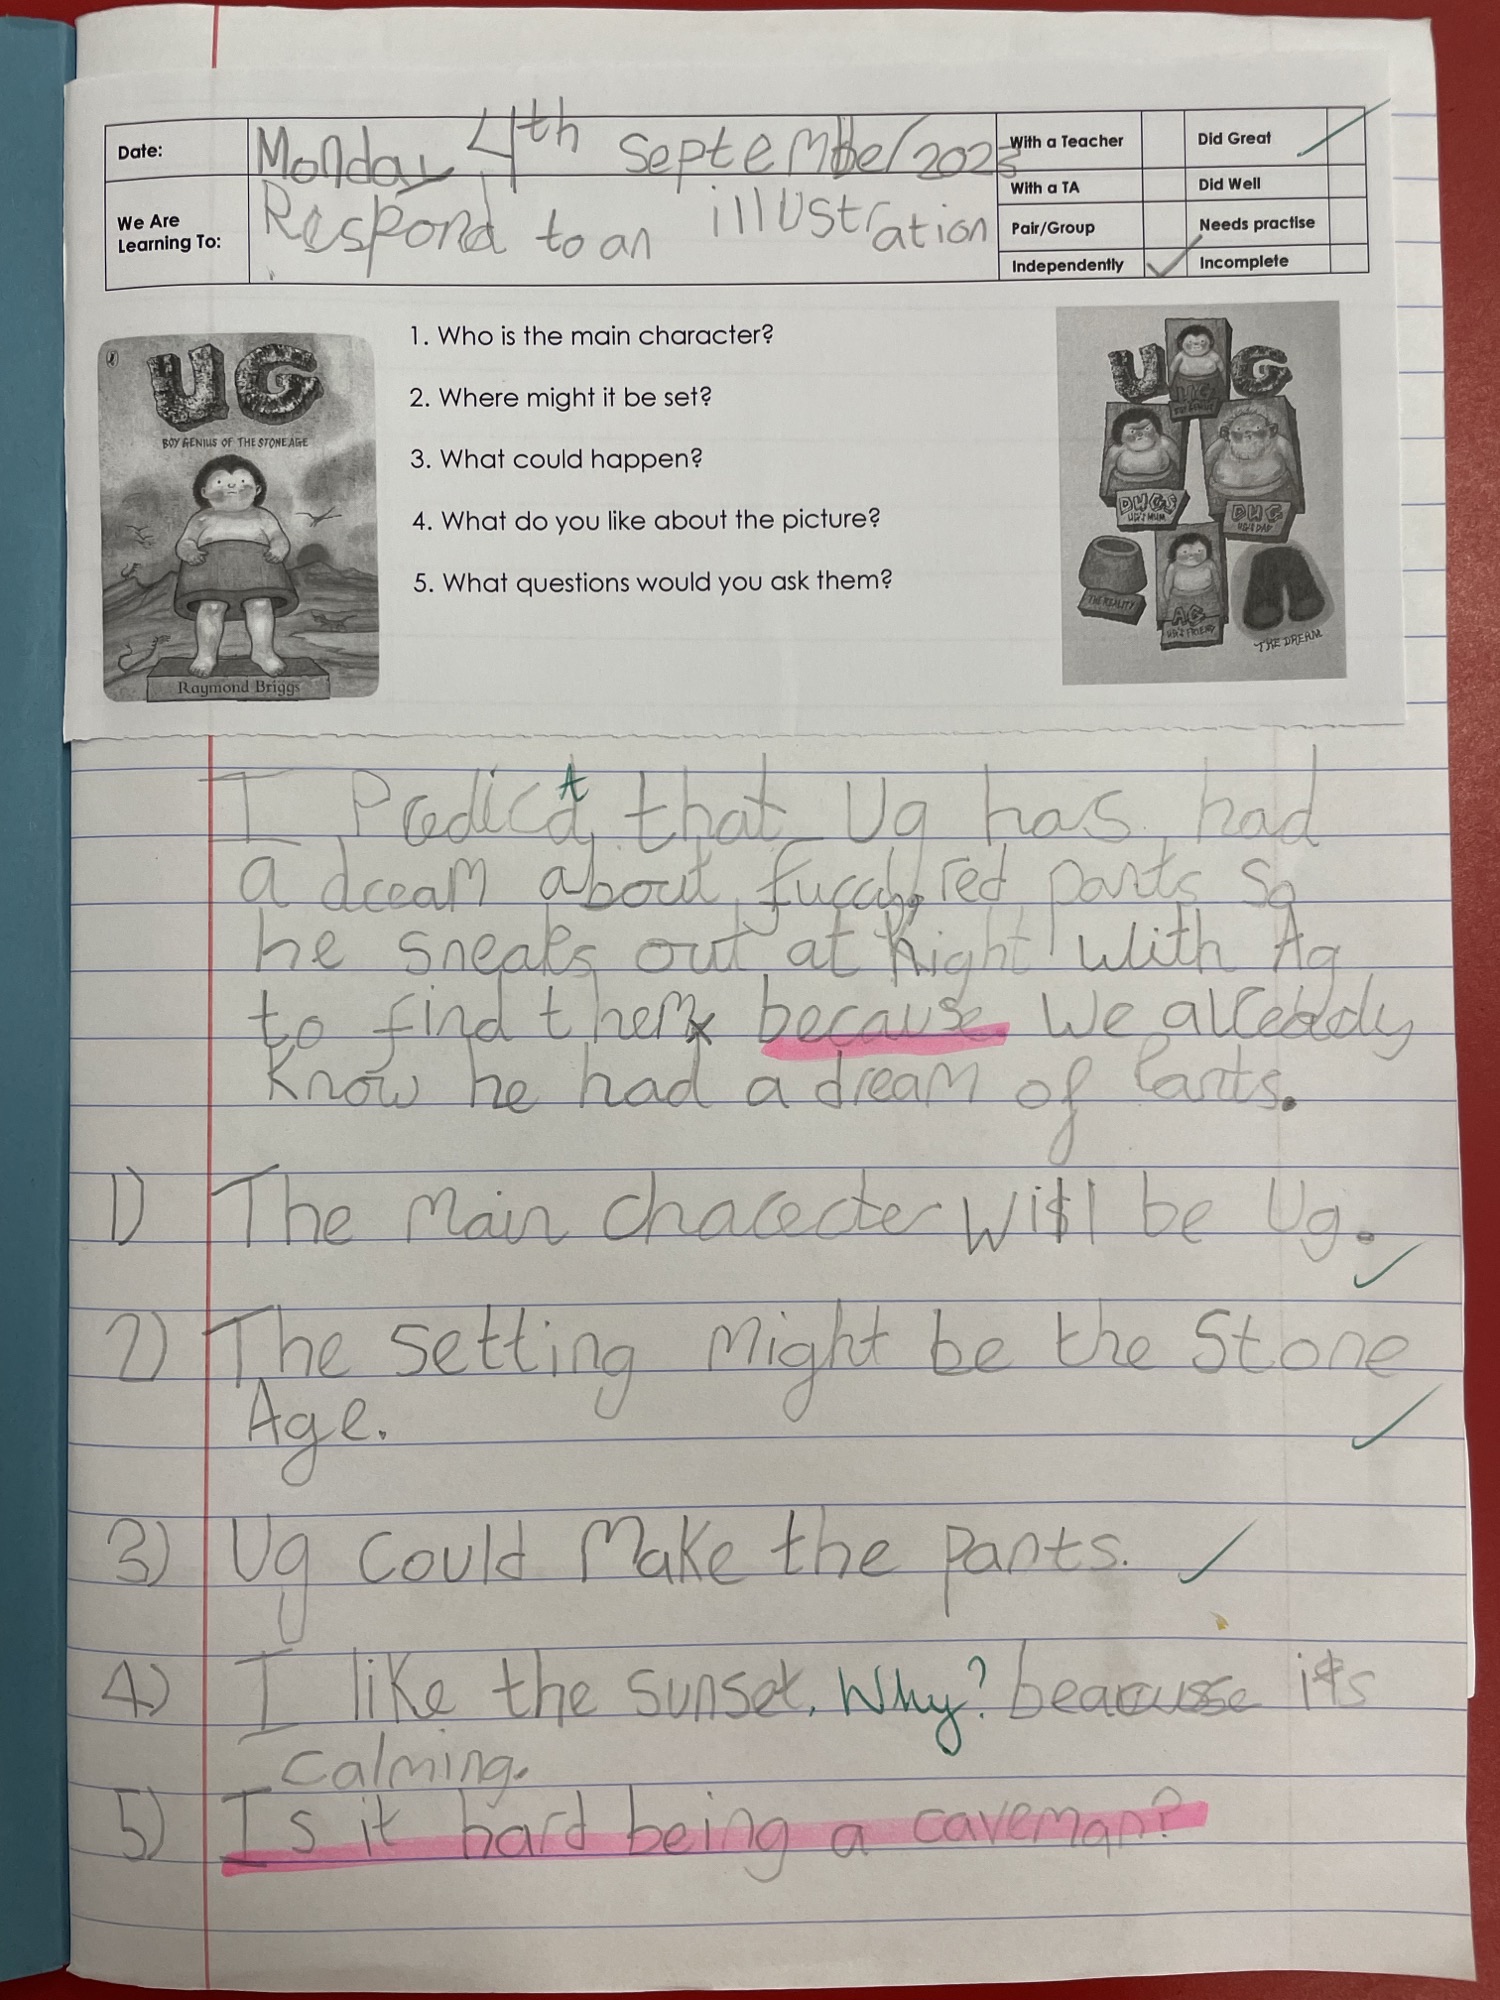 Date:
Monday 4th September 2023
We Are
Learning To:
Respond to an illustration
With a Teacher
Did Great
With a TA
Did Well
Pair/Group
Needs practise
Independently
Incomplete
UG
BOY GENIUS OF THE STONE AGE
Raymond Briggs
1. Who is the main character?
2. Where might it be set?
3. What could happen?
4. What do you like about the picture?
5. What questions would you ask them?
UG
UG
DUGS
UG'S MUM
DUG
UG'S DAD
THE REALITY
AG
UG'S FRIEND
THE DREAM
I Predict that Ug has had
a dream about red pants so
he sneaks out at night with Ag
to find them because We alreaddy
Know he had a dream of Pants.
1) The Main charecter will be Ug.
2) The setting Might be the Stone
Age.
3) Ug could Make the pants.
4) I like the sunset. Why? beacusse its
calming.
5) Is it hard being a caveman?